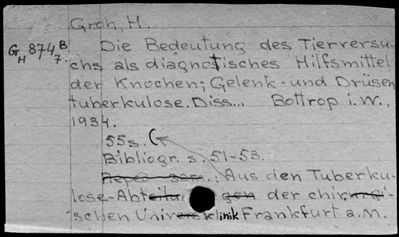 Groh, H.
G H 874 B 7.
Die Bedeutung des Tierversu-
chs als diagnostisches Hilfsmittel
der Knochen; Gelenk- und Drüsen
tuberkulose. Diss... Bottrop i. W.,
1934.
55 s.
Bibliogr. s. 51-53.
: Aus den Tuberku-
lose-Abteilungen der chirurgi-
schen Univ. klinik Frankfurt a. M.